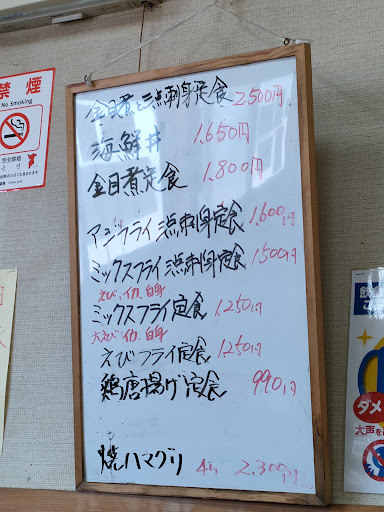 禁煙
No Smoking
完全禁煙
金目煮と三点刺身定食 2,500円
海鮮丼 1,650円
金目煮定食 1,800円
アジフライ三点刺身定食 1,600円
ミックスフライ三点刺身定食 1,500円
えび、イカ、白身
ミックスフライ定食 1,250円
大えび、イカ、白身
えびフライ定食 1,250円
鶏唐揚げ定食 990円
焼ハマグリ 2,300円
ダメ
大声を